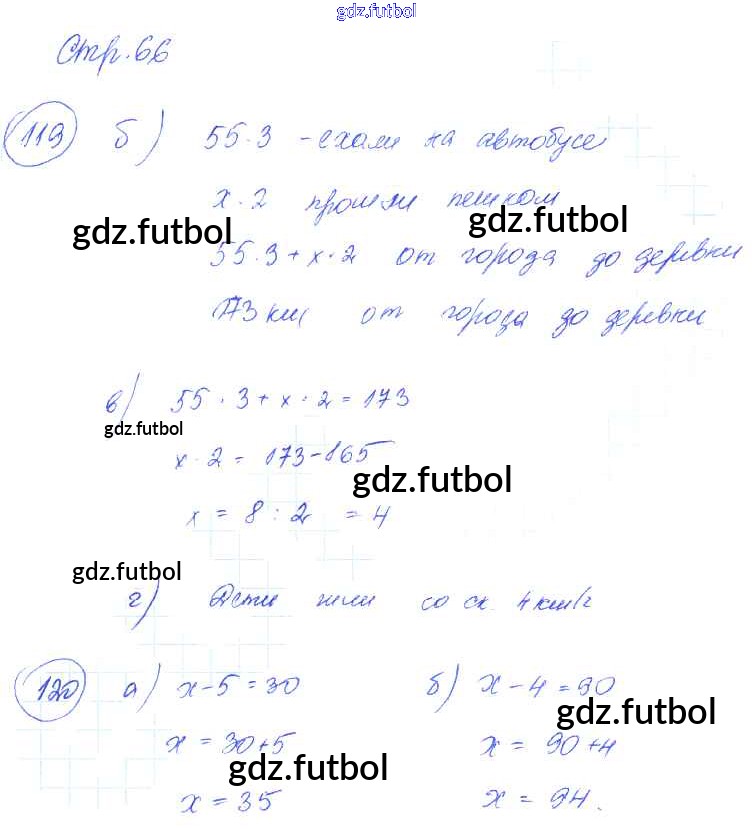 gdz.futbol
Стр. 66
119 б) 55·3 - ехали на автобусе
х·2 прошли пешком
gdz.futbol gdz.futbol
55·3+х·2 от города до деревни
173 км от города до деревни
в) 55·3+х·2=173
gdz.futbol
х·2=173-165
gdz.futbol
х = 8:2 = 4
gdz.futbol
г) Дети шли со ск. 4 км/г
120 а) х-5=30 б) х-4=90
gdz.futbol
х=30+5 х=90+4
gdz.futbol
х=35 х=94.